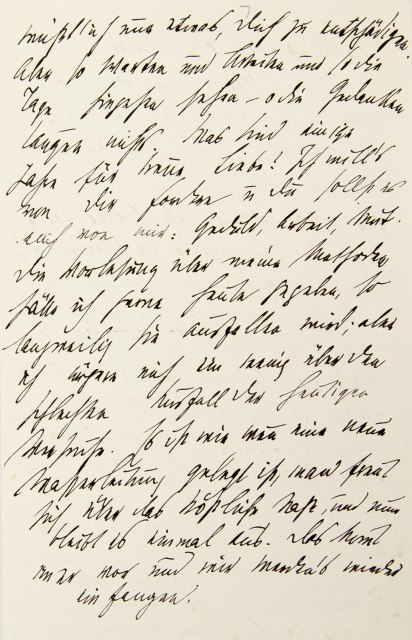 nur etwas, Dich zu entschädigen.
Aber so warten und und so die
Tage hingehen sehen – o die Gedanken
taugen nichts. Was sind einige
Jahre für treue Liebe! Ich will's
von Dir fordern u du sollst es
auch von mir: Geduld, Arbeit, Mut.
Die Vorlesung über meine Methode,
hätte ich gerne heute gegeben, so
langweilig sie ausfallen wird; aber
ich mich ein wenig über den
schlechten Ausfall der heutigen
Versuche. Es ist wie wenn eine neue
Wasserleitung gelegt ist, man freut
sich über das köstliche Naß, und nun
bleibt es einmal aus. Das kommt
immer vor und wir werden's wieder
einfangen.